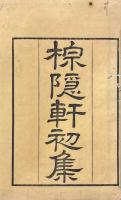 棕隱軒初集